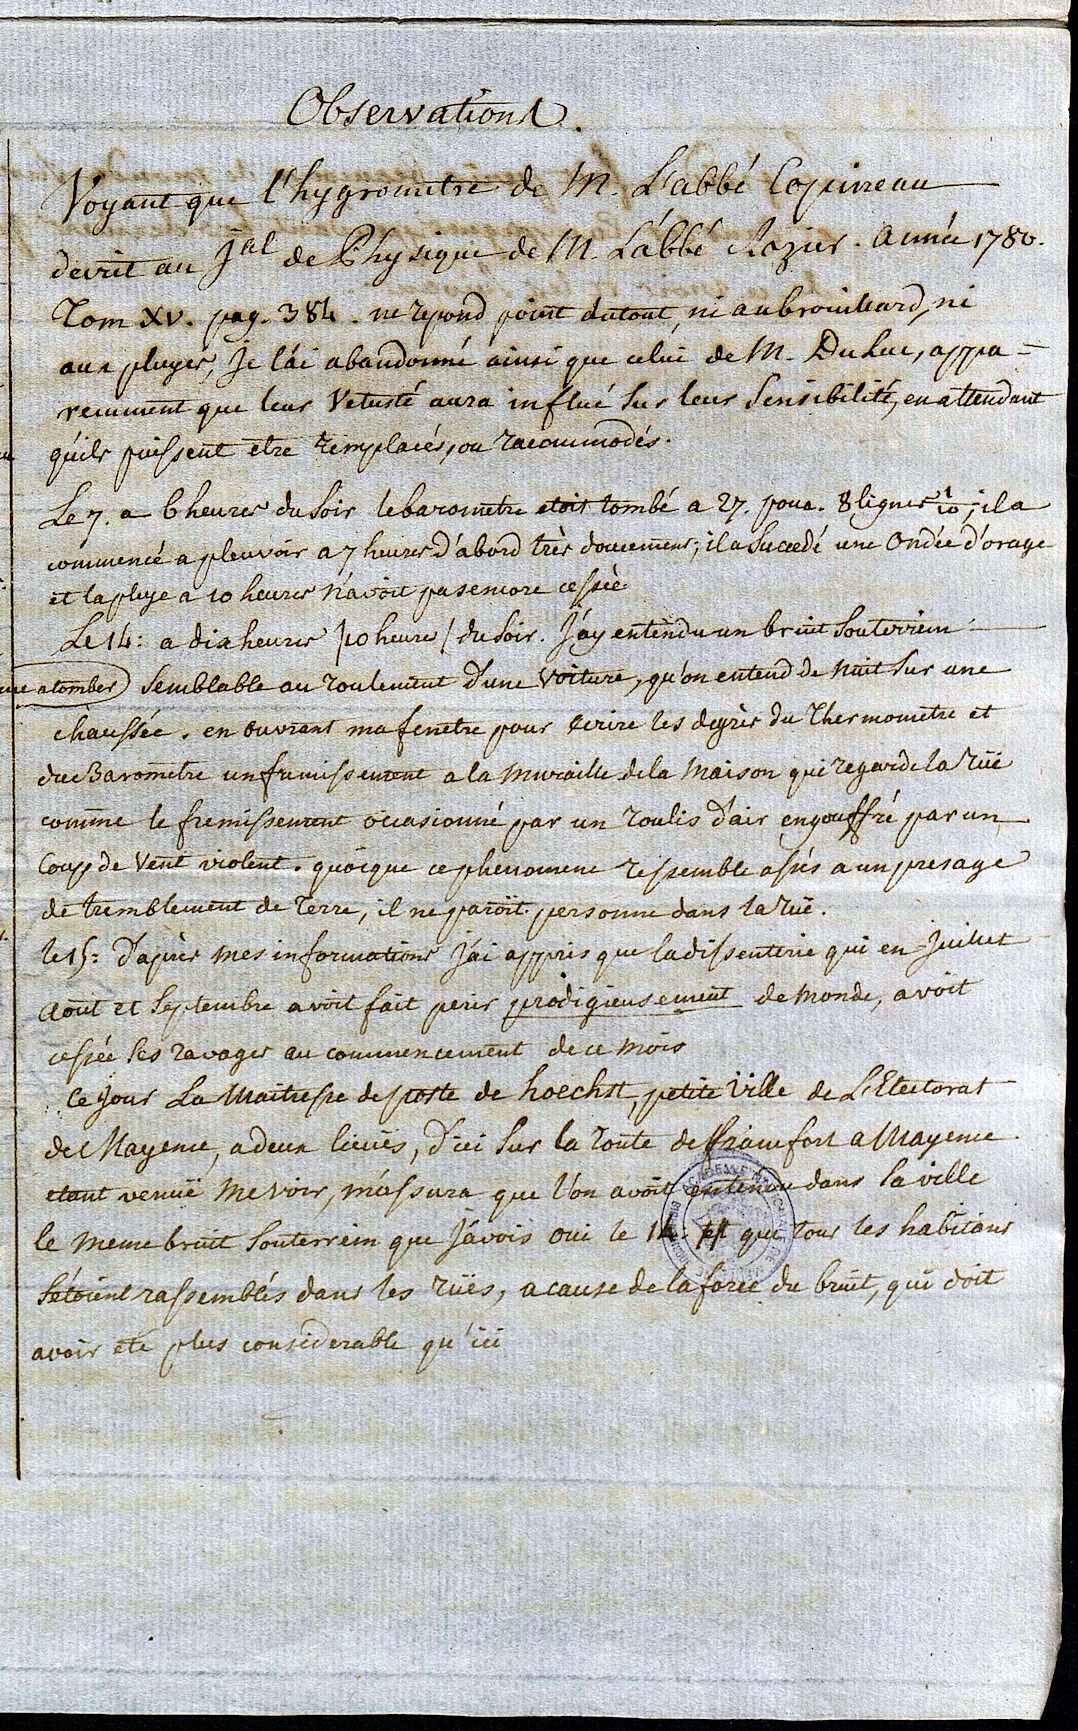 Observations.
Voyant que l'hygrometre de M. L'abbé Copineau
decrit au Jal de Physique de M. L'abbé Rozier. année 1780.
Tom XV. pag. 384. ne repond point dutout, ni au brouillard, ni
aux pluyes, Je l'ai abandonné ainsi que celui de M. Du Luc, appa=
remment que leur Vetusté aura influé sur leur Sensibilité, en attendant
qu'ils puissent etre remplacés, ou racommodés.
Le 7. a 6 heures du Soir le barometre etoit tombé a 27. pouc. 8 lignes 1/10; il a
commencé a pleuvoir a 7 heures d'abord très doucement; il a Succedé une Ondée d'orage
et la pluye a 10 heures n'avoit pas encore cessée.
Le 14: a dix heures /10 heures/ du Soir. J'ay entendu un bruit Souterrein
a tomber) Semblable au roulement d'une Voiture, qu'on entend de Nuit Sur une
chaussée. en ouvrant ma fenetre pour ecrire les degrès du Thermometre et
du Barometre un fremissement a la Muraille de la Maison qui regarde la rüe
comme le fremissement occasionné par un roulis d'air engouffré par un
Coup de Vent violent. quoique ce phenomene ressemble assés a un presage
de tremblement de Terre, il ne paroit personne dans la rüe.
le 15: d'après mes informations j'ai appris que la dissenterie qui en Juillet
Aout et Septembre avoit fait perir prodigieusement de monde, avoit
cessée Ses ravages au commencement de ce mois
Ce jour La Maitresse de poste de hoechst, petite Ville de L'Electorat
de Mayence, a deux lieües, d'ici Sur la route de ffrancfort a Mayence
etant venuë Me voir, m'assura que l'on avoit entendu dans Sa ville
le meme bruit Souterrein que j'avois oui le 14. et que tous les habitans
S'étoient rassemblés dans les rües, a cause de la force du bruit, qui doit
avoir été plus considerable qu'ici